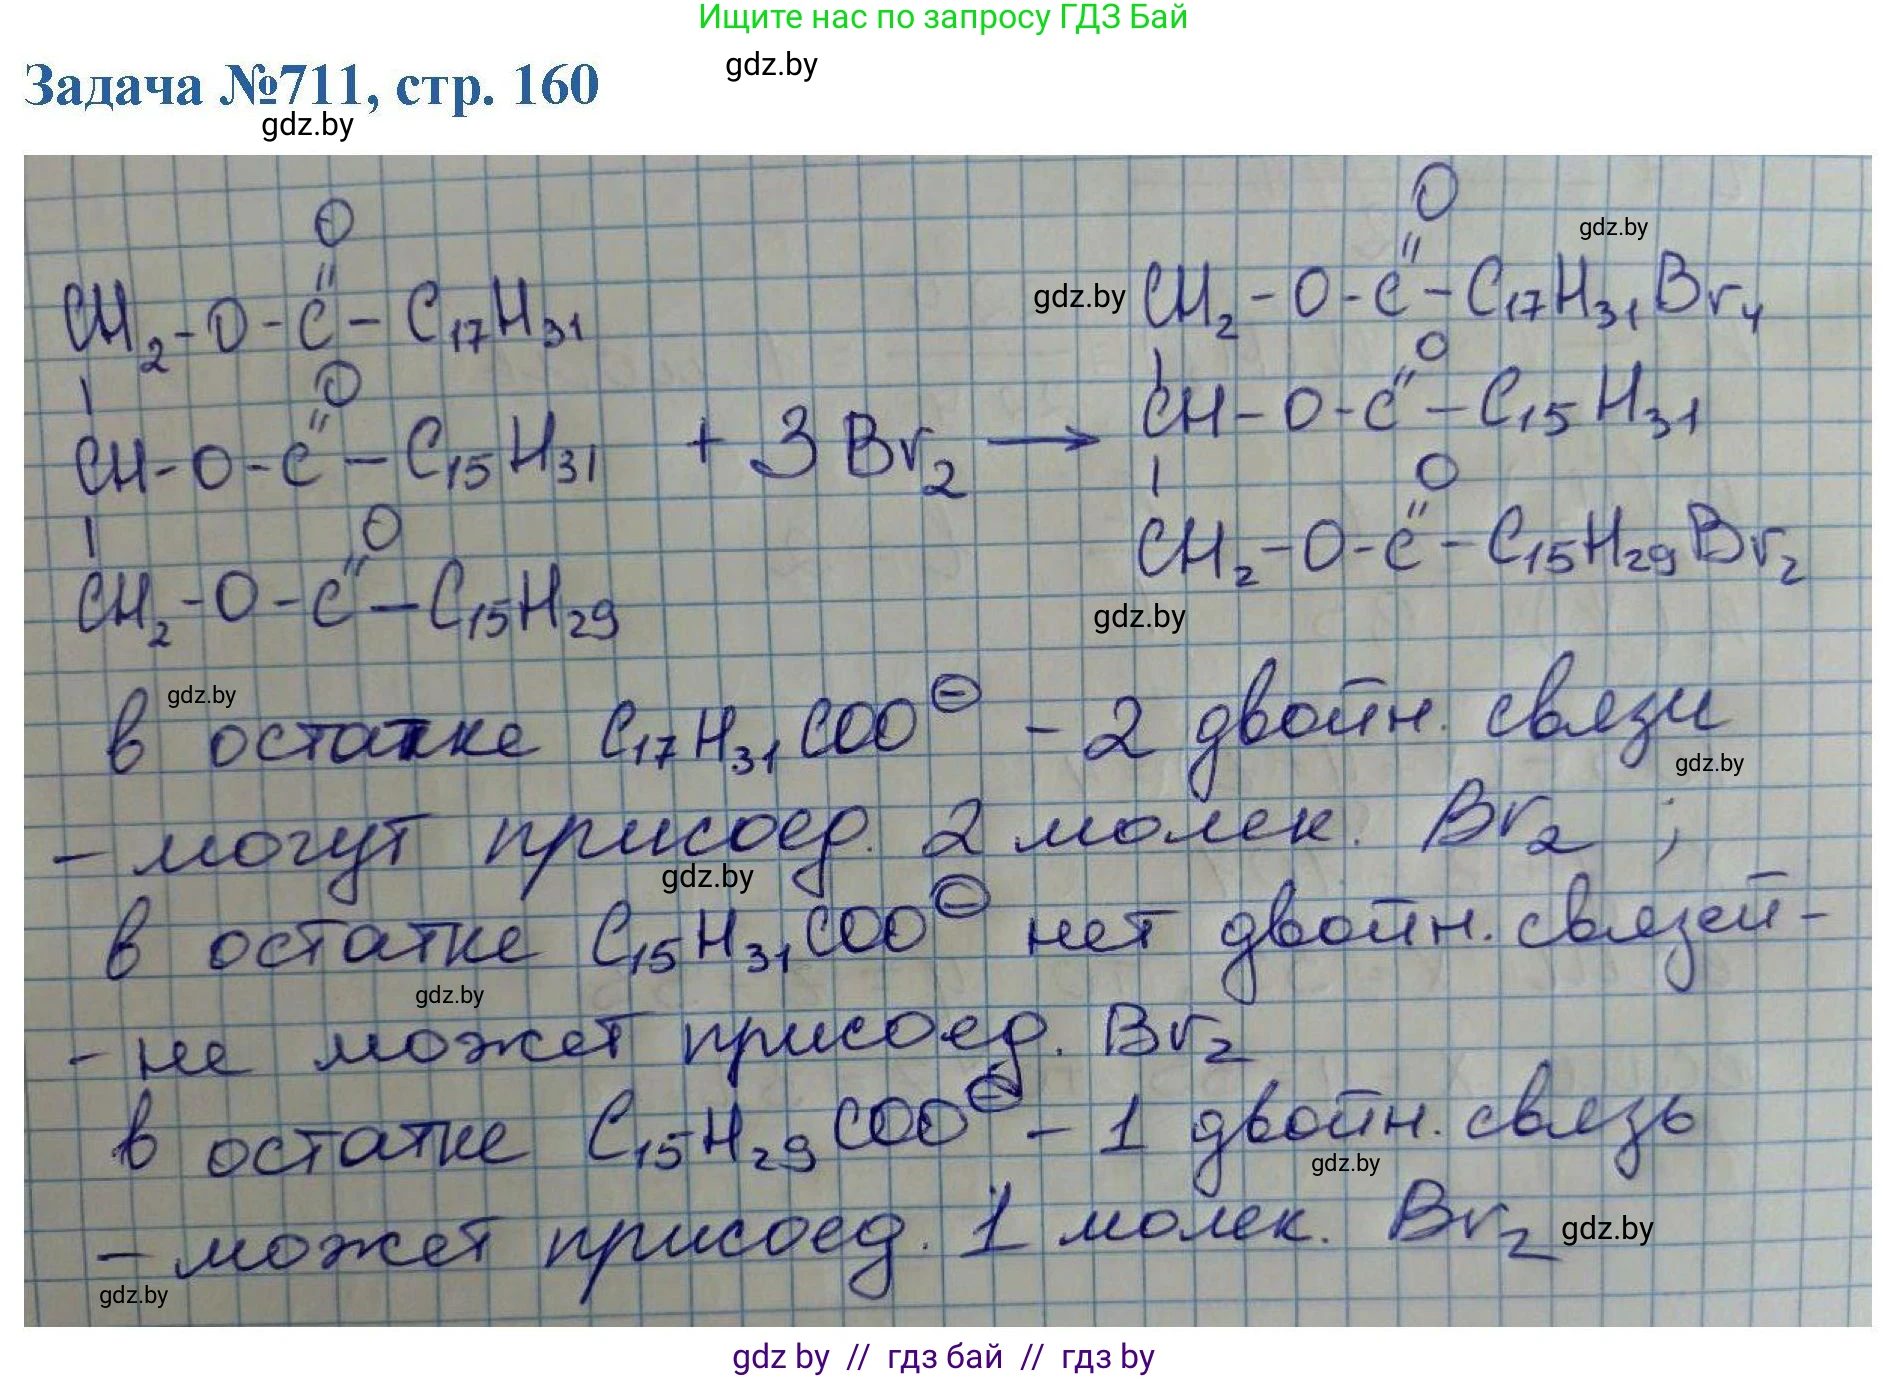 Ищите нас по запросу ГДЗ Бай
gdz.by
Задача №711, стр. 160
gdz.by
O
O
gdz.by
CH2-O-C-C17H31
gdz.by
CH2-O-C-C17H31Br4
O
O
CH-O-C-C15H31 + 3Br2 → CH-O-C-C15H31
O
O
CH2-O-C-C15H29
CH2-O-C-C15H29Br2
gdz.by
gdz.by
в остатке C17H31COO⊖ - 2 двойн. связи
gdz.by
- могут присоед. 2 молек. Br2 ;
gdz.by
в остатке C15H31COO⊖ нет двойн. связей-
gdz.by
- не может присоед. Br2
в остатке C15H29COO⊖ - 1 двойн. связь
gdz.by
- может присоед. 1 молек. Br2
gdz.by
gdz.by
gdz by // гдз бай // гдз by